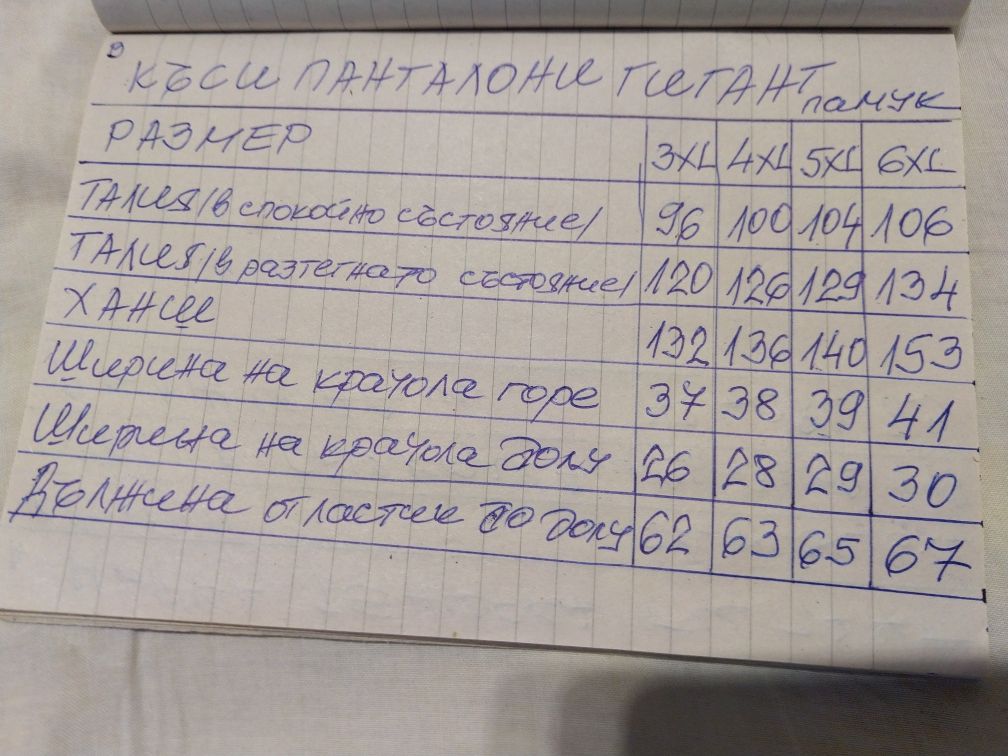 9
КЪСИ ПАНТАЛОНИ ГИГАНТ памук
РАЗМЕР 3XL 4XL 5XL 6XL
ТАЛИЯ /в спокойно състояние/ 96 100 104 106
ТАЛИЯ /в разтегнато състояние/ 120 126 129 134
ХАНШ 132 136 140 153
Ширина на крачола горе 37 38 39 41
Ширина на крачола долу 26 28 29 30
Дължина от ластик до долу 62 63 65 67